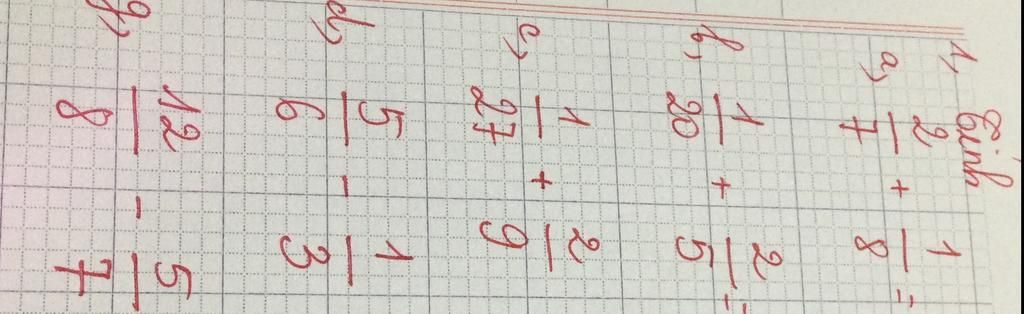 1, Tính
a, 2/7 + 1/8 =
b, 1/20 + 2/5 =
c, 1/27 + 2/9
d, 5/6 - 1/3
g, 12/8 - 5/7